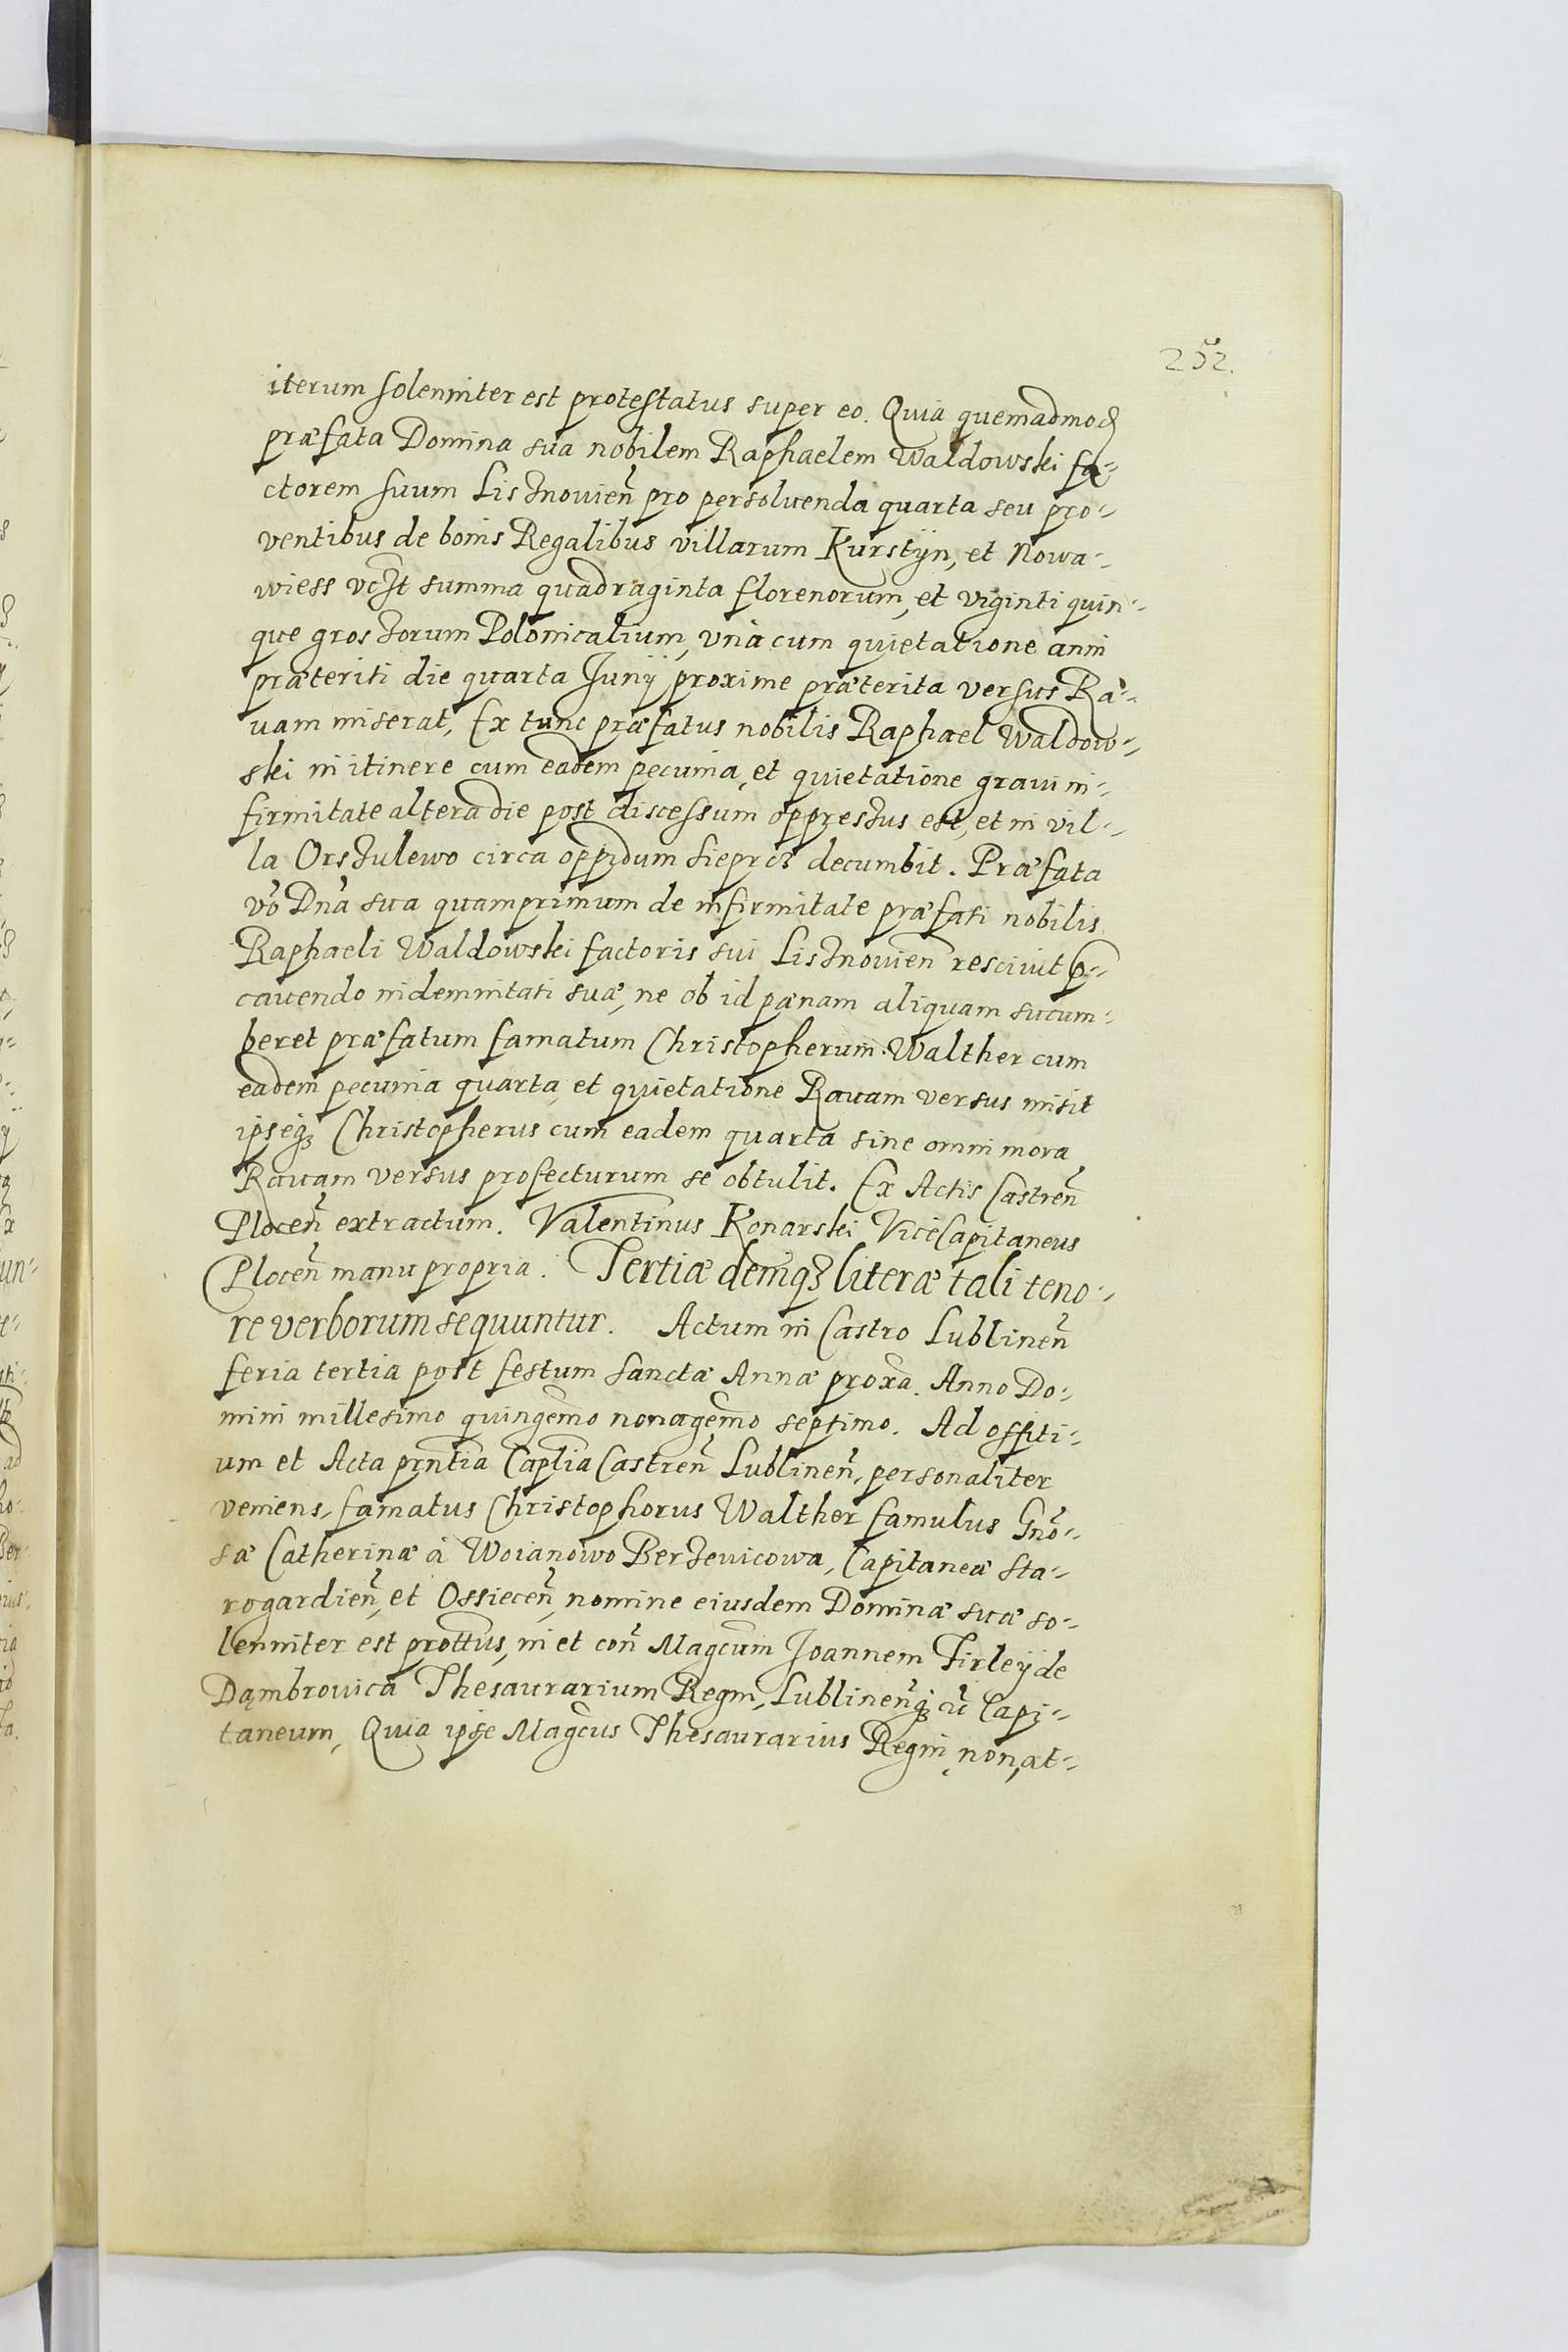 252.
iterum solenniter est protestatus super eo. Quia quemadmod
præfata Domina sua nobilem Raphaelem Waldowski fa-
ctorem suum Lissnovien̄ pro persolvenda quarta seu pro-
ventibus de bonis Regalibus villarum Kurstyn, et Nowa-
wiess summa quadraginta florenorum, et viginti quin-
que grossorum Polonicalium, unà cum quietatione anni
præteriti die quarta Junij proxime præterita versus Ra-
uam miserat, Ex tunc præfatus nobilis Raphael Waldow-
ski in itinere cum eadem pecunia, et quietatione graui in-
firmitate altera die post discessum oppressus est, et in vil-
la Orssulewo circa oppidum Sieprcz decumbit. Præfata
v̄o Dn̄a sua quamprimum de infirmitate præfati nobilis
Raphaeli Waldowski factoris sui Lissnovien̄ resciuit
cauendo indemnitati suæ, ne ob id pænam aliquam sucum-
beret præfatum famatum Christopherum Walther cum
eadem pecunia quarta, et quietatione Rauam versus misit
ipseq₃ Christopherus cum eadem quarta sine omni mora
Rauam versus profecturum se obtulit. Ex Actis Castren̄
Plocen̄ extractum. Valentinus Konarski ViceCapitaneus
Plocen̄ manu propria. Tertiæ deniq₃ literæ tali teno-
re verborum sequuntur. Actum in Castro Lublinen̄
feria tertia post festum Sanctæ Annæ proxa. Anno Do-
mini millesimo quingemo nonagemo septimo. Ad offiti-
um et Acta prn̄tia Caplia Castren̄ Lublinen̄, personaliter
veniens, famatus Christophorus Walther famulus Gn̄o-
sæ Catherinæ à Woianowo Berseuicowa, Capitaneæ Sta-
rogardien̄, et Ossiecen̄, nomine eiusdem Dominæ suæ so-
lenniter est prottus, in et con̄ Magcum Joannem Firleij de
Dąmbrouica Thesaurarium Regni, Lublinen̄q₃ Capi-
taneum, Quia ipse Magcus Thesaurarius Regni, non, at-